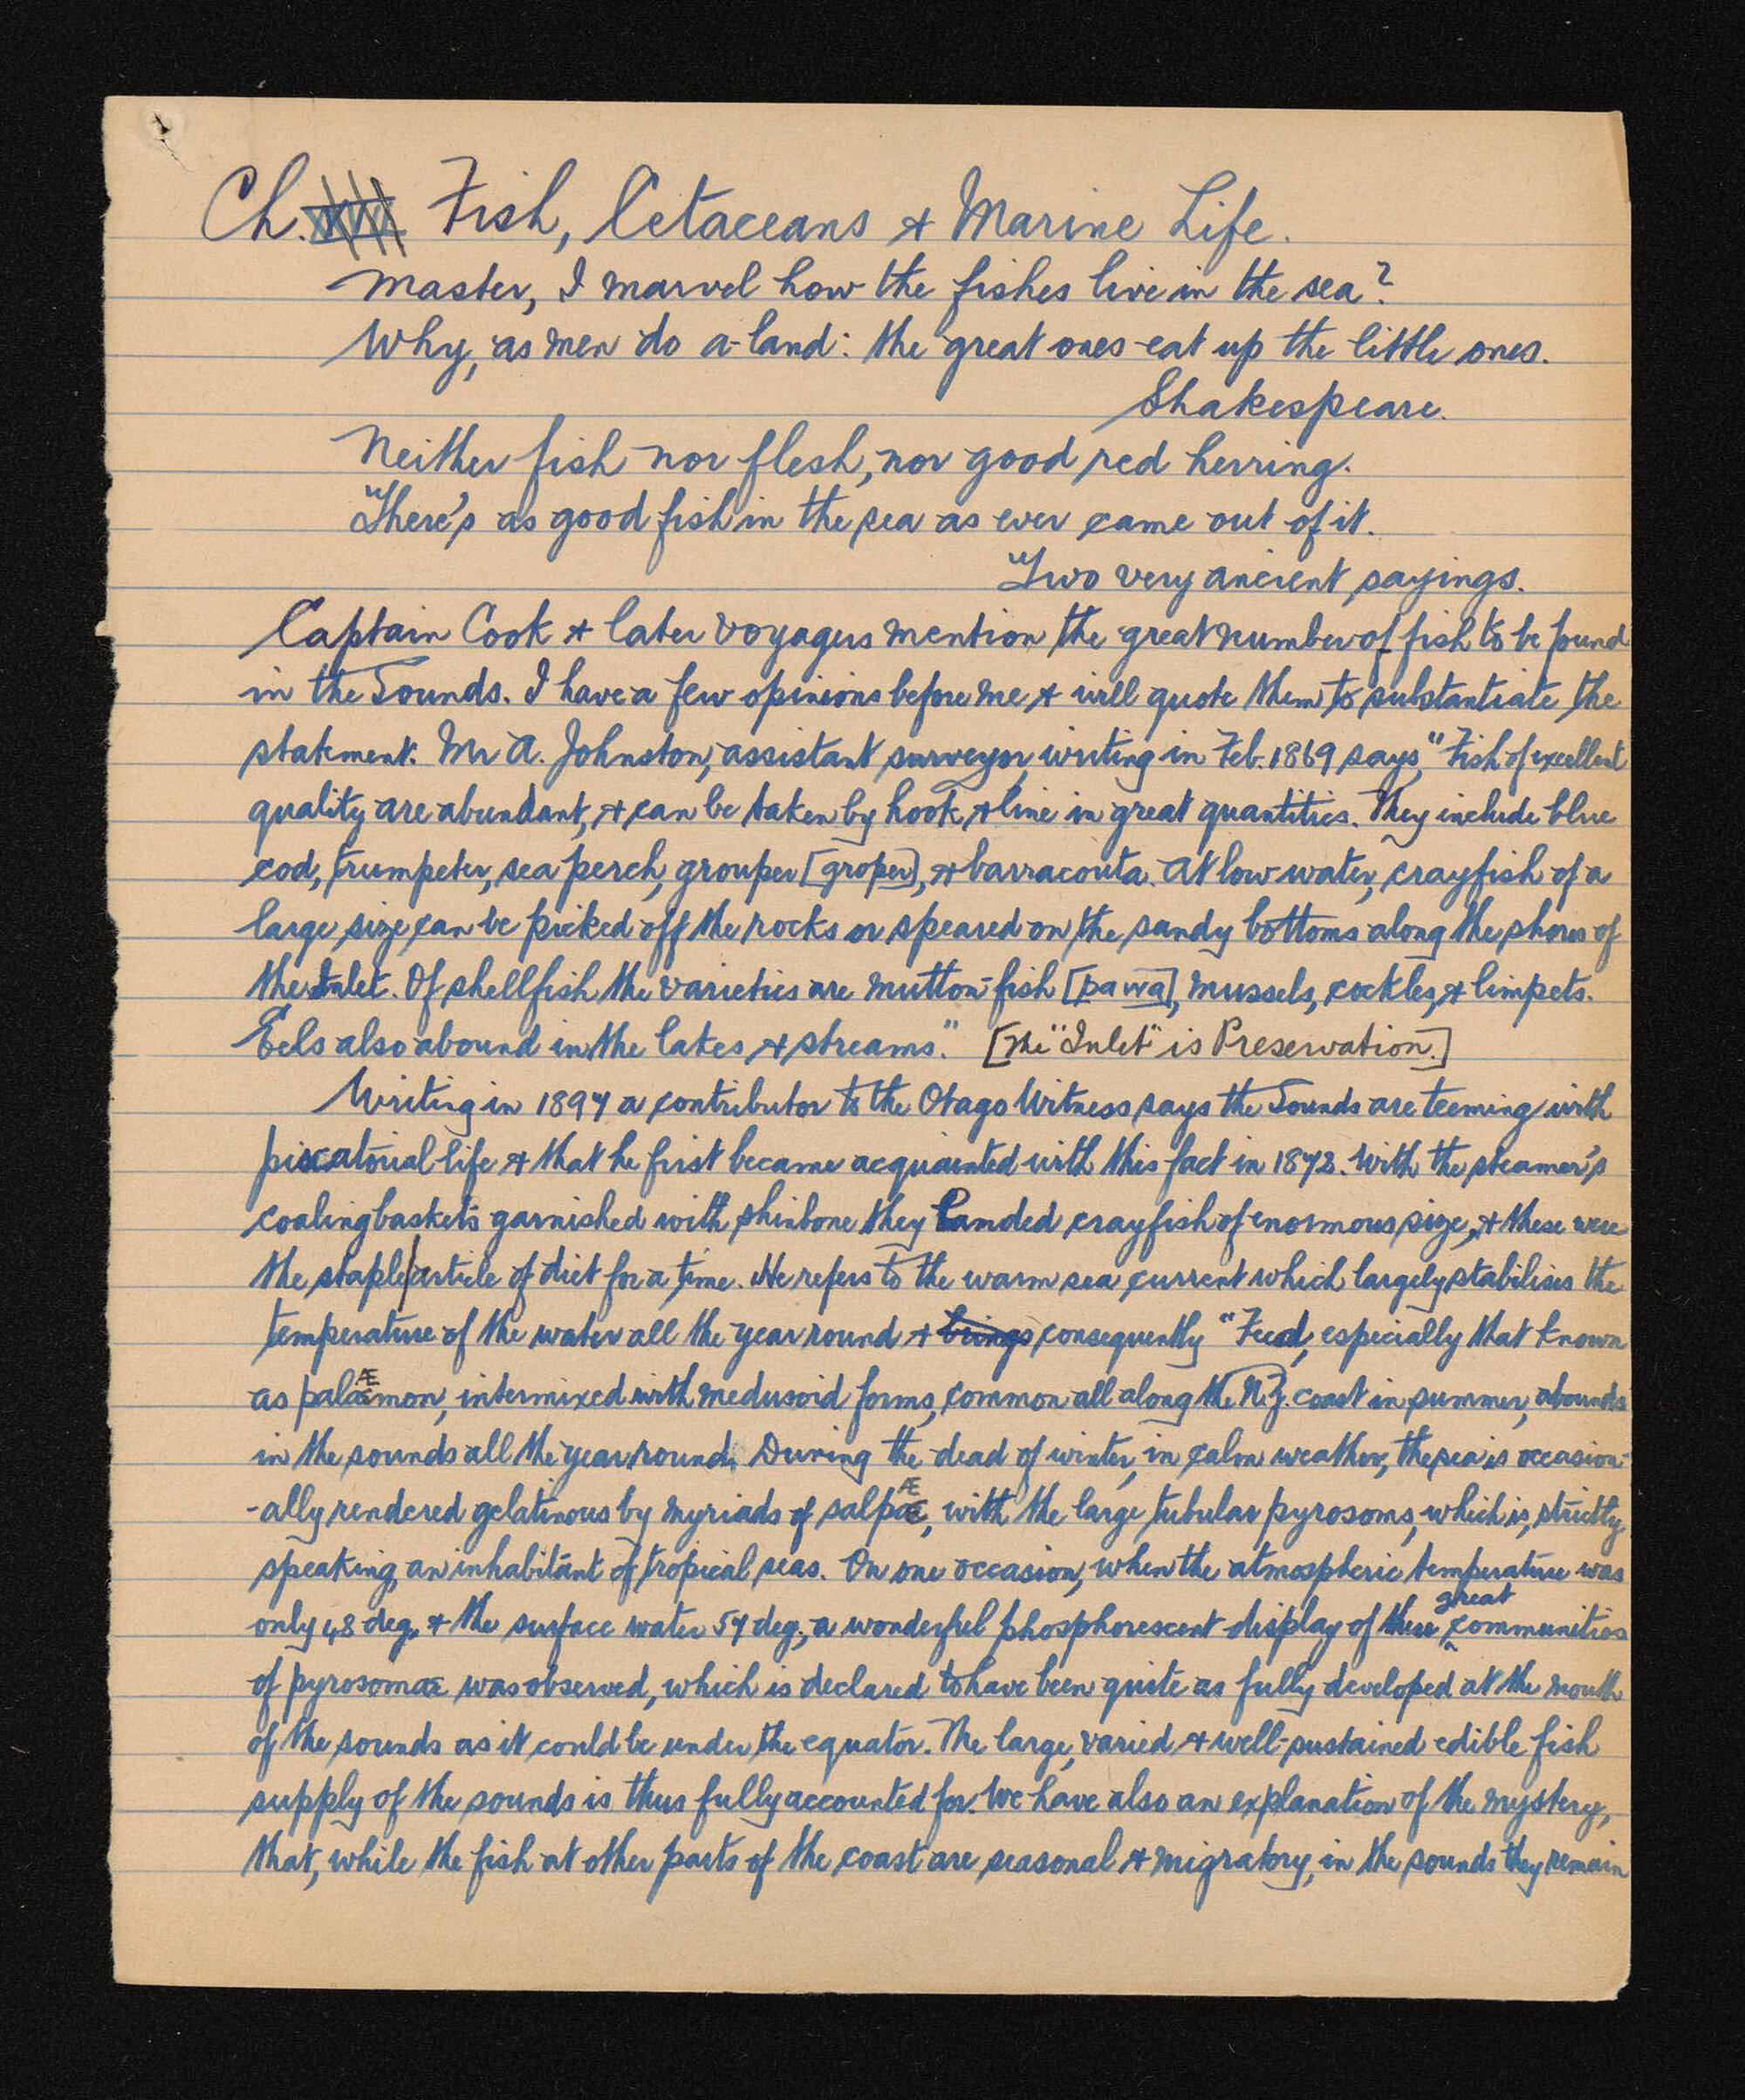 Ch. Fish, Cetaceans & Marine Life.
Master, I marvel how the fishes live in the sea?
Why, as men do a-land: the great ones eat up the little ones.
Shakespeare.
Neither fish nor flesh, nor good red herring.
There's as good fish in the sea as ever came out of it.
Two very ancient sayings.
Captain Cook & later voyagers mention the great number of fish to be found
in the Sounds. I have a few opinions before me & will quote them to substantiate the
statement. Mr A. Johnston, assistant surveyor, writing in Feb. 1869 says, "Fish of excellent
quality are abundant, & can be taken by hook & line in great quantities. They include blue
cod, trumpeter, sea perch, grouper [groper], & barracouta. At low water, crayfish of a
large size can be picked off the rocks or speared on the sandy bottoms along the shores of
the Inlet. Of shellfish the varieties are mutton-fish [pawa], mussels, cockles, & limpets.
Eels also abound in the lakes & streams." [The "Inlet" is Preservation.]
Writing in 1897 a contributor to the Otago Witness says the Sounds are teeming with
piscatorial life & that he first became acquainted with this fact in 1872. With the steamer's
coaling baskets garnished with shinbone they landed crayfish of enormous size, & these were
the staple article of diet for a time. He refers to the warm sea current which largely stabilises the
temperature of the water all the year round & brings consequently "Feed, especially that known
as palæmon, intermixed with medusoid forms, common all along the N.Z. coast in summer, abounds
in the sounds all the year round. During the dead of winter, in calm weather, the sea is occasion-
-ally rendered gelatinous by myriads of salpæ, with the large tubular pyrosoms, which is, strictly
speaking, an inhabitant of tropical seas. On one occasion, when the atmospheric temperature was
only 48 deg. & the surface water 54 deg., a wonderful phosphorescent display of these great communities
of pyrosomae was observed, which is declared to have been quite as fully developed at the mouth
of the sounds as it could be under the equator. The large, varied & well-sustained edible fish
supply of the sounds is thus fully accounted for. We have also an explanation of the mystery,
that, while the fish at other parts of the coast are seasonal & migratory, in the sounds they remain